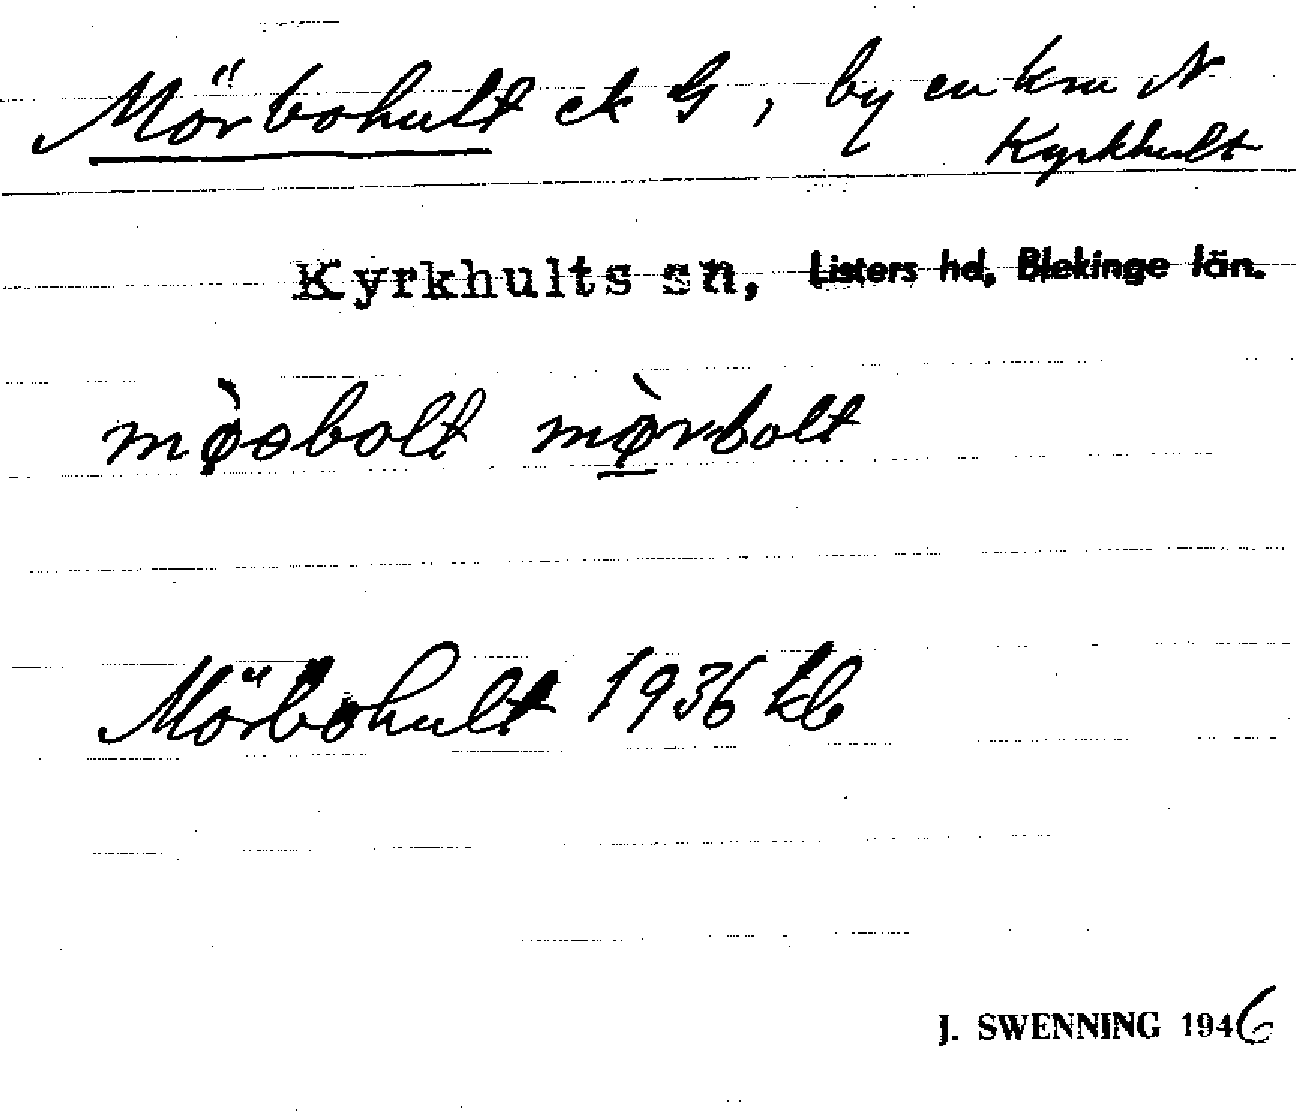 Mörbohult ek G, by en km N
Kyrkhult
Kyrkhults sn, Listers hd, Blekinge län.
mø̀obolt mø̀rbolt
Mörbohult 1936 kb
J. SWENNING 1946